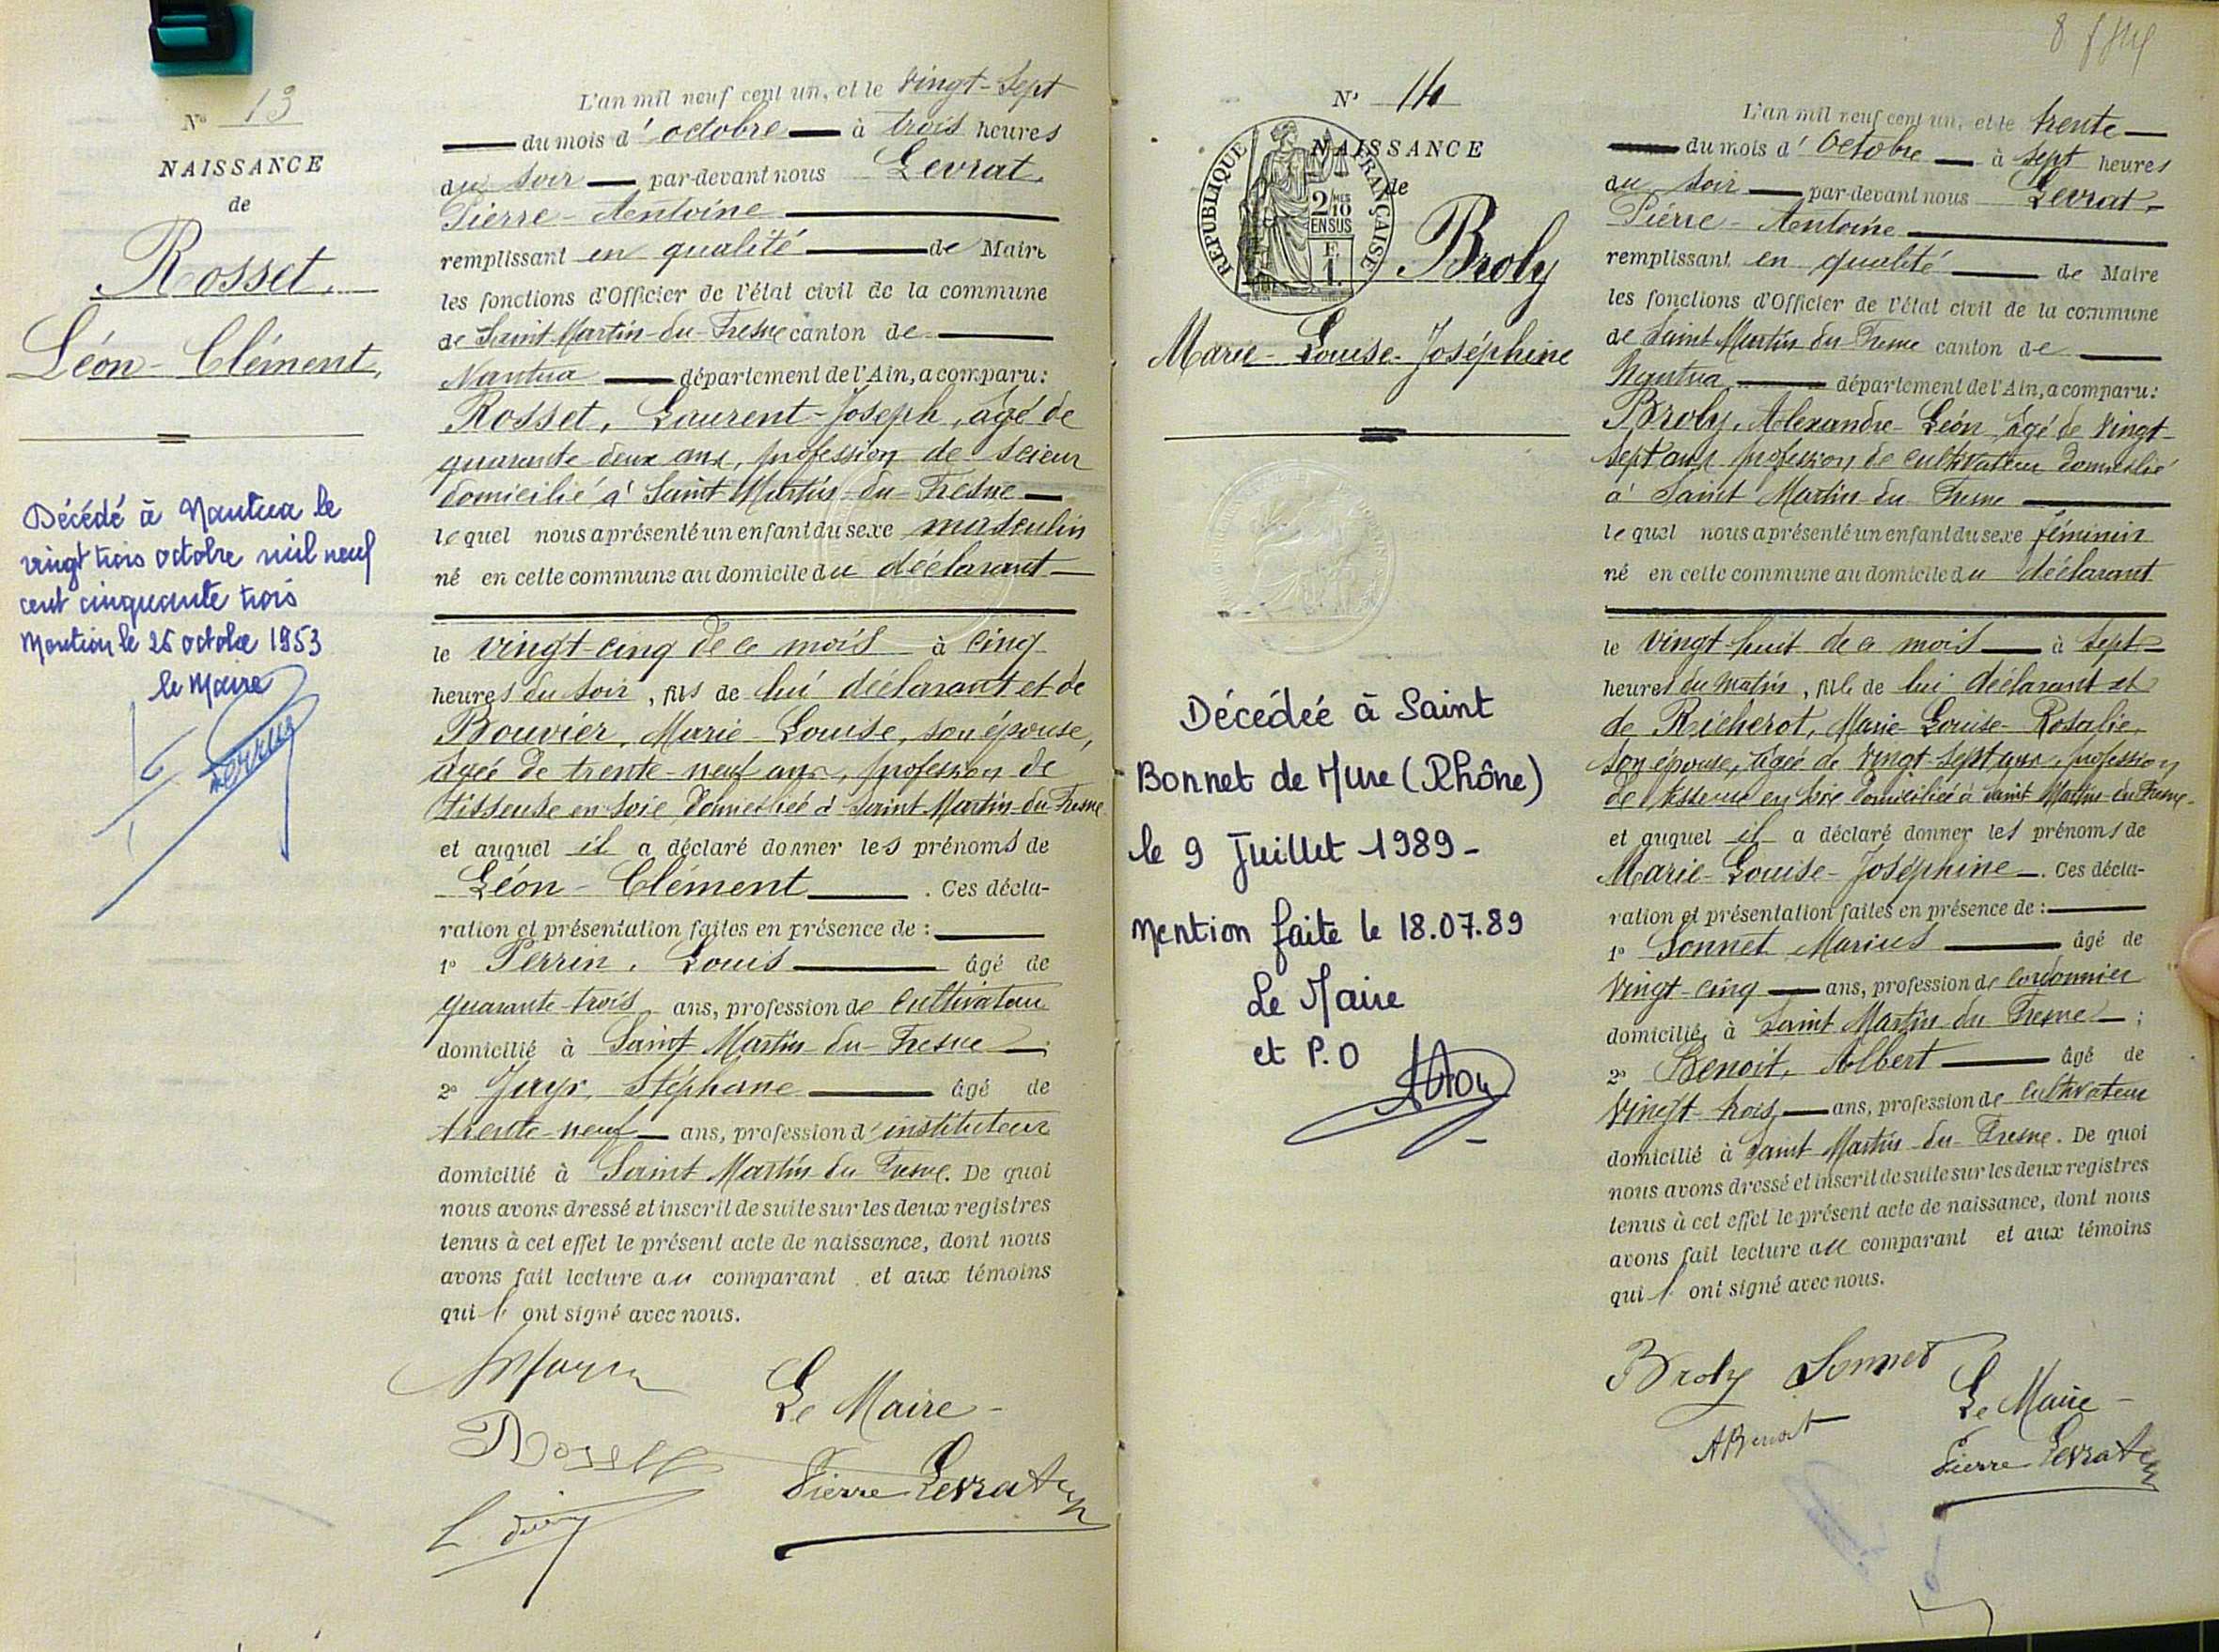 N° 13
NAISSANCE
de
Rosset,
Léon-Clément,
Décédé à Nantua le
vingt trois octobre mil neuf
cent cinquante trois
Mention le 26 octobre 1953
le Maire
L'an mil neuf cent un, et le vingt-sept
du mois d'octobre à trois heures
du soir par-devant nous Levrat,
Pierre-Antoine
remplissant en qualité de Maire
les fonctions d'Officier de l'état civil de la commune
de Saint-Martin-du-Fresne canton de
Nantua département de l'Ain, a comparu:
Rosset, Laurent-Joseph, âgé de
quarante deux ans, profession de scieur
domicilié à Saint Martin-du-Fresne
lequel nous a présenté un enfant du sexe masculin
né en cette commune au domicile du déclarant
le vingt-cinq de ce mois à cinq
heures du soir, fils de lui déclarant et de
Bouvier, Marie-Louise, son épouse,
âgée de trente-neuf ans, profession de
tisseuse en soie domiciliée à Saint-Martin-du-Fresne
et auquel il a déclaré donner les prénoms de
Léon-Clément. Ces décla-
ration et présentation faites en présence de :
1° Perrin, Louis âgé de
quarante-trois ans, profession de cultivateur
domicilié à Saint Martin-du-Fresne ;
2° Jayr, Stéphane âgé de
trente-neuf ans, profession d'instituteur
domicilié à Saint Martin du Fresne. De quoi
nous avons dressé et inscrit de suite sur les deux registres
tenus à cet effet le présent acte de naissance, dont nous
avons fait lecture au comparant et aux témoins
qui l'ont signé avec nous.
Le Maire
Rosset
Pierre Levrat
N° 14
NAISSANCE
de
RÉPUBLIQUE FRANÇAISE
2/10
EN SUS
F.
1.
Broly
Marie-Louise-Joséphine
Décédée à Saint
Bonnet de Mure (Rhône)
le 9 Juillet 1989-
Mention faite le 18.07.89
Le Maire
et P.O
L'an mil neuf cent un, et le trente
du mois d'Octobre à sept heures
du soir par-devant nous Levrat
Pierre-Antoine
remplissant en qualité de Maire
les fonctions d'Officier de l'état civil de la commune
de Saint Martin-du-Fresne canton de
Nantua département de l'Ain, a comparu:
Broly, Alexandre-Léon âgé de vingt-
sept ans profession de cultivateur domicilié
à Saint Martin-du-Fresne
lequel nous a présenté un enfant du sexe féminin
né en cette commune au domicile du déclarant
le vingt-huit de ce mois à sept
heures du matin, fille de lui déclarant et
de Richerot, Marie-Louise-Rosalie,
son épouse, âgée de vingt-sept ans, profession
de tisseuse en soie domiciliée à Saint Martin-du-Fresne
et auquel il a déclaré donner les prénoms de
Marie-Louise-Joséphine. Ces décla-
ration et présentation faites en présence de :
1° Sonnet Marius âgé de
vingt-cinq ans, profession de cordonnier
domicilié à Saint Martin du Fresne ;
2° Benoit, Albert âgé de
vingt-trois ans, profession de cultivateur
domicilié à Saint Martin-du-Fresne. De quoi
nous avons dressé et inscrit de suite sur les deux registres
tenus à cet effet le présent acte de naissance, dont nous
avons fait lecture au comparant et aux témoins
qui l'ont signé avec nous.
Broly Sonnet
Le Maire
ABenoit
Pierre Levrat